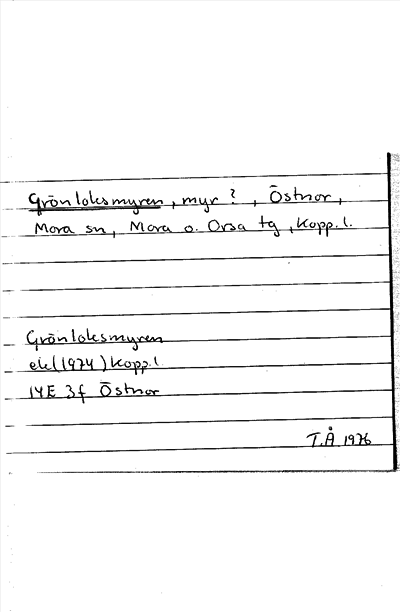 Grönloksmyren, myr?, Östnor,
Mora sn, Mora o. Orsa tg, Kopp. l.
Grönloksmyren
ek (1974) Kopp l
14E 3f Östnor
T.Å 1976